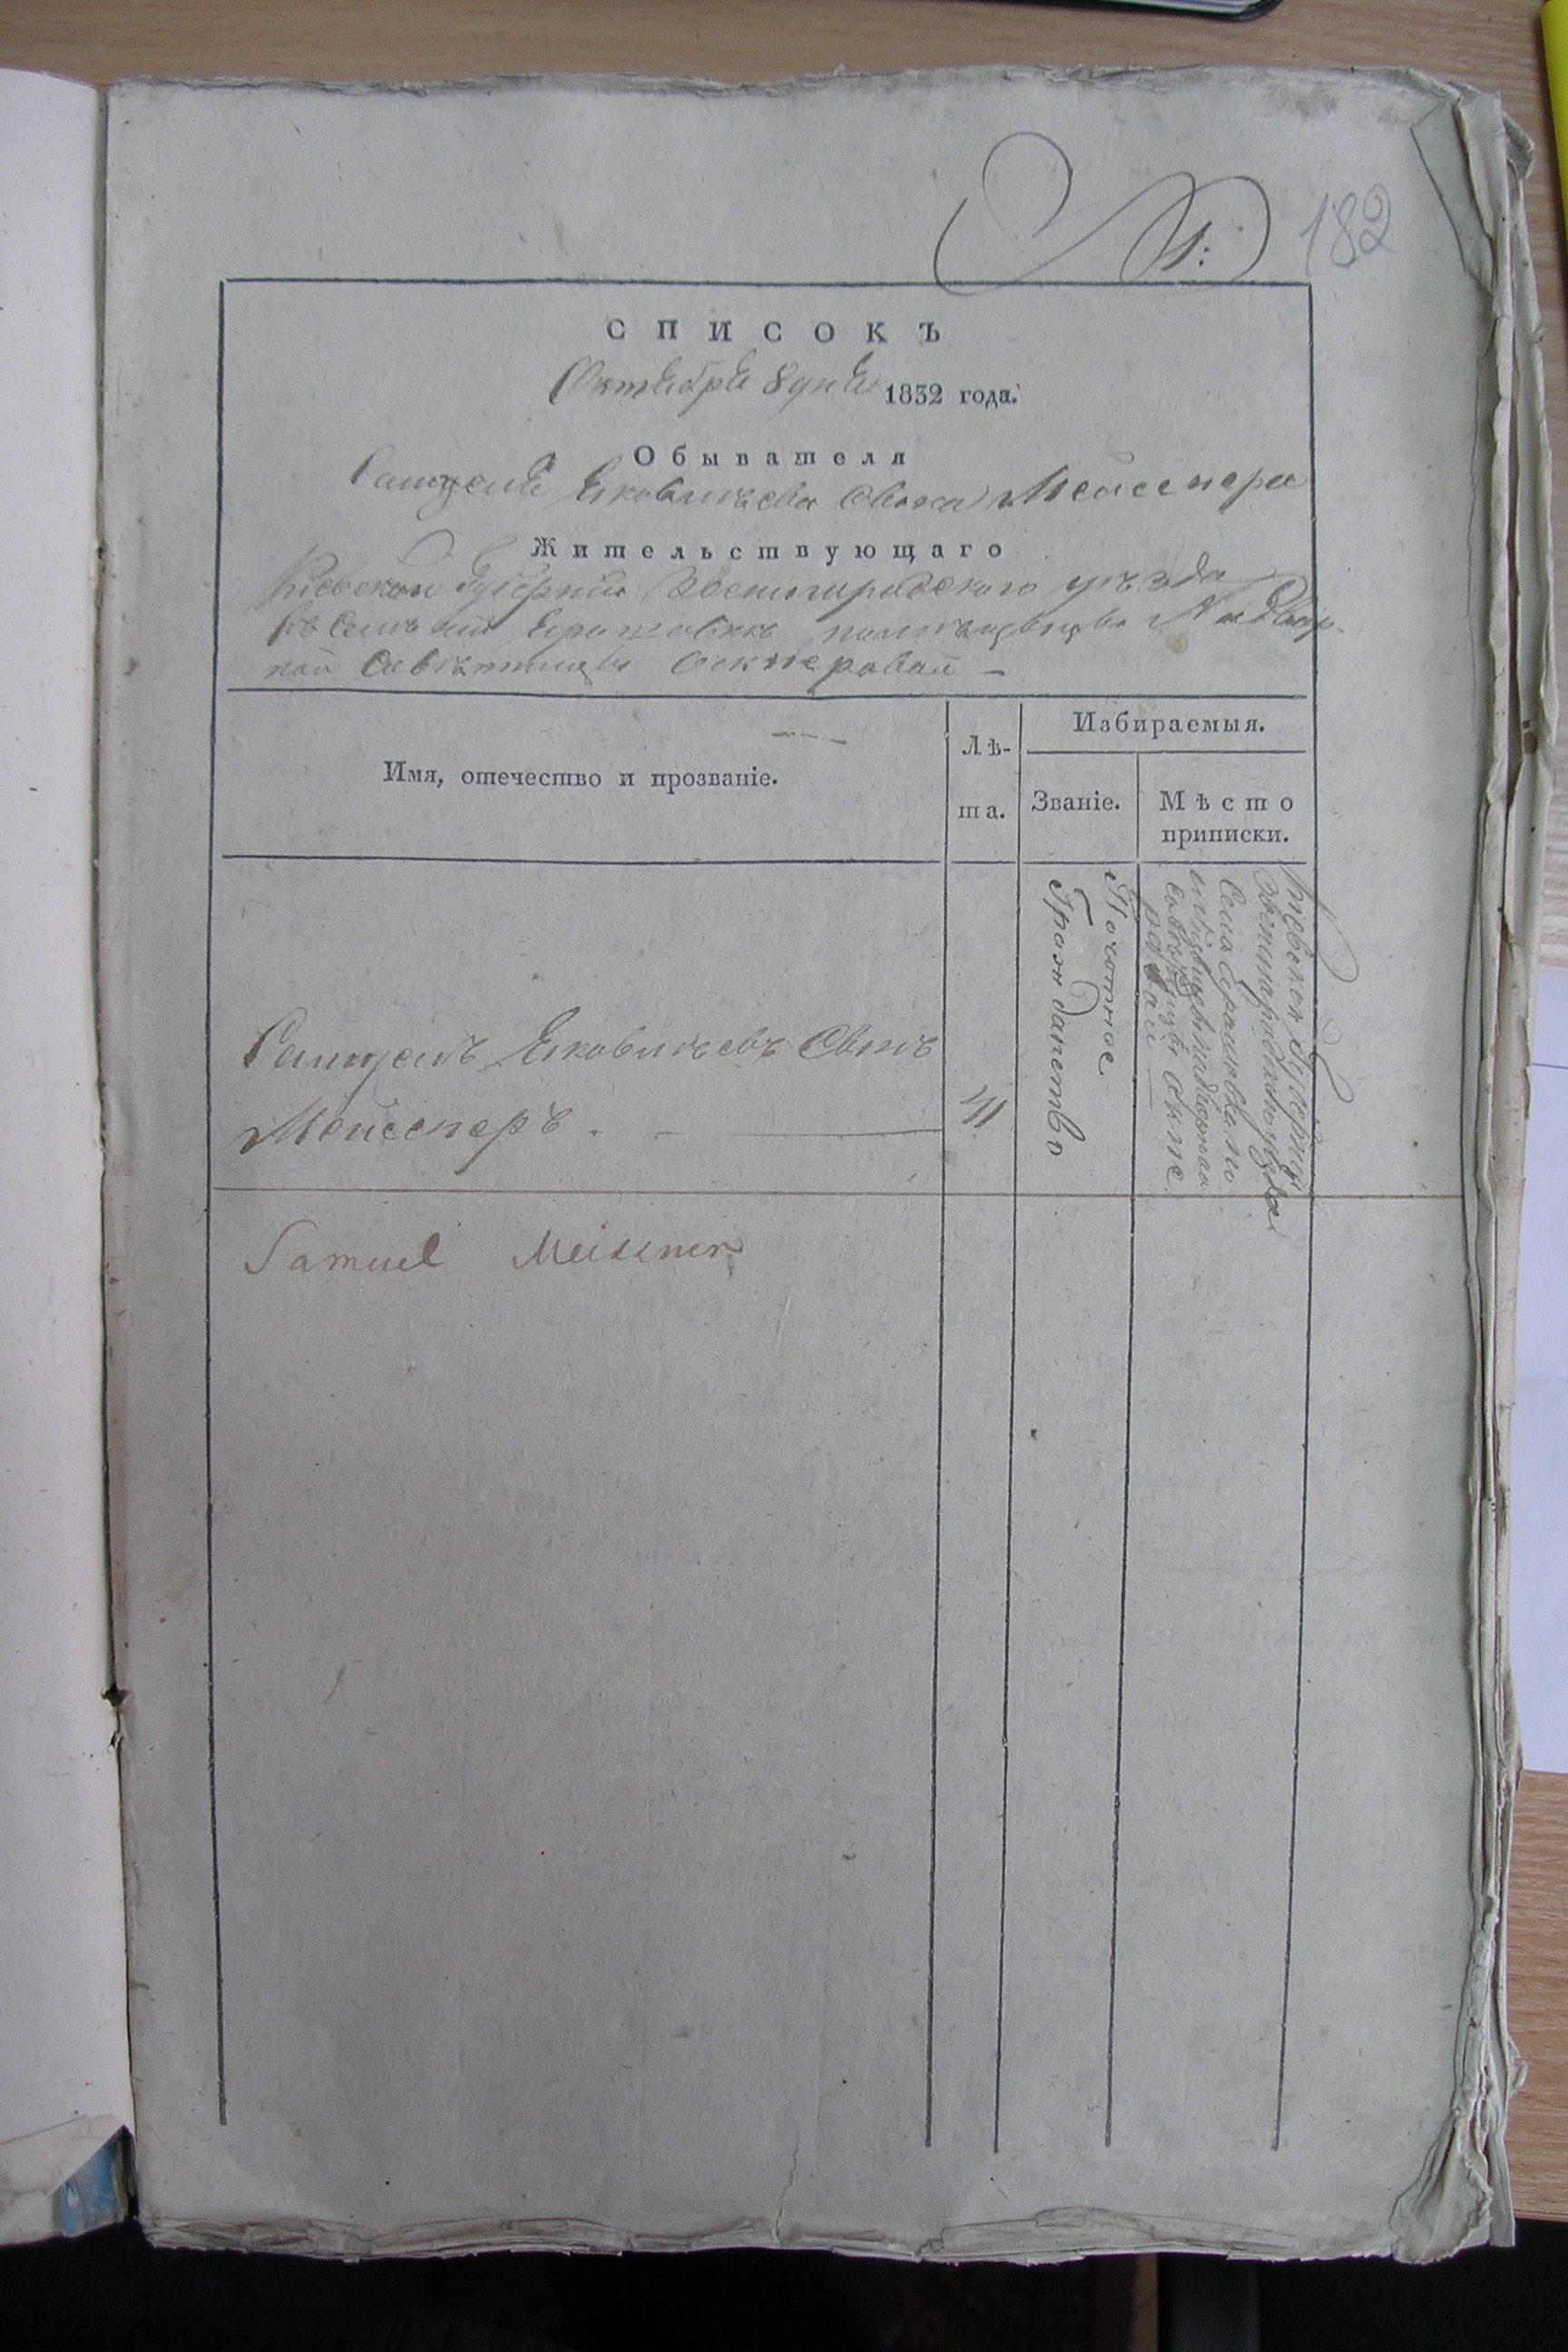 182
СПИСОКЪ
Октября 8 дня 1832 года.
Обывателя
Самуеля Яковлева сына Мейснера
Жительствующаго
Киевской Губернии Звенигородского уезда
в селении помещицы Надвор-
ной Советницы
Имя, отечество и прозваніе.
Лѣ-
та.
Избираемыя.
Званіе.
Мѣсто
приписки.
Самуелъ Яковлевъ Сынъ
Мейснеръ.
Почотное
Гражданство
Киевской Губернии
Звенигородского уезда
Села
Samuel Meissner